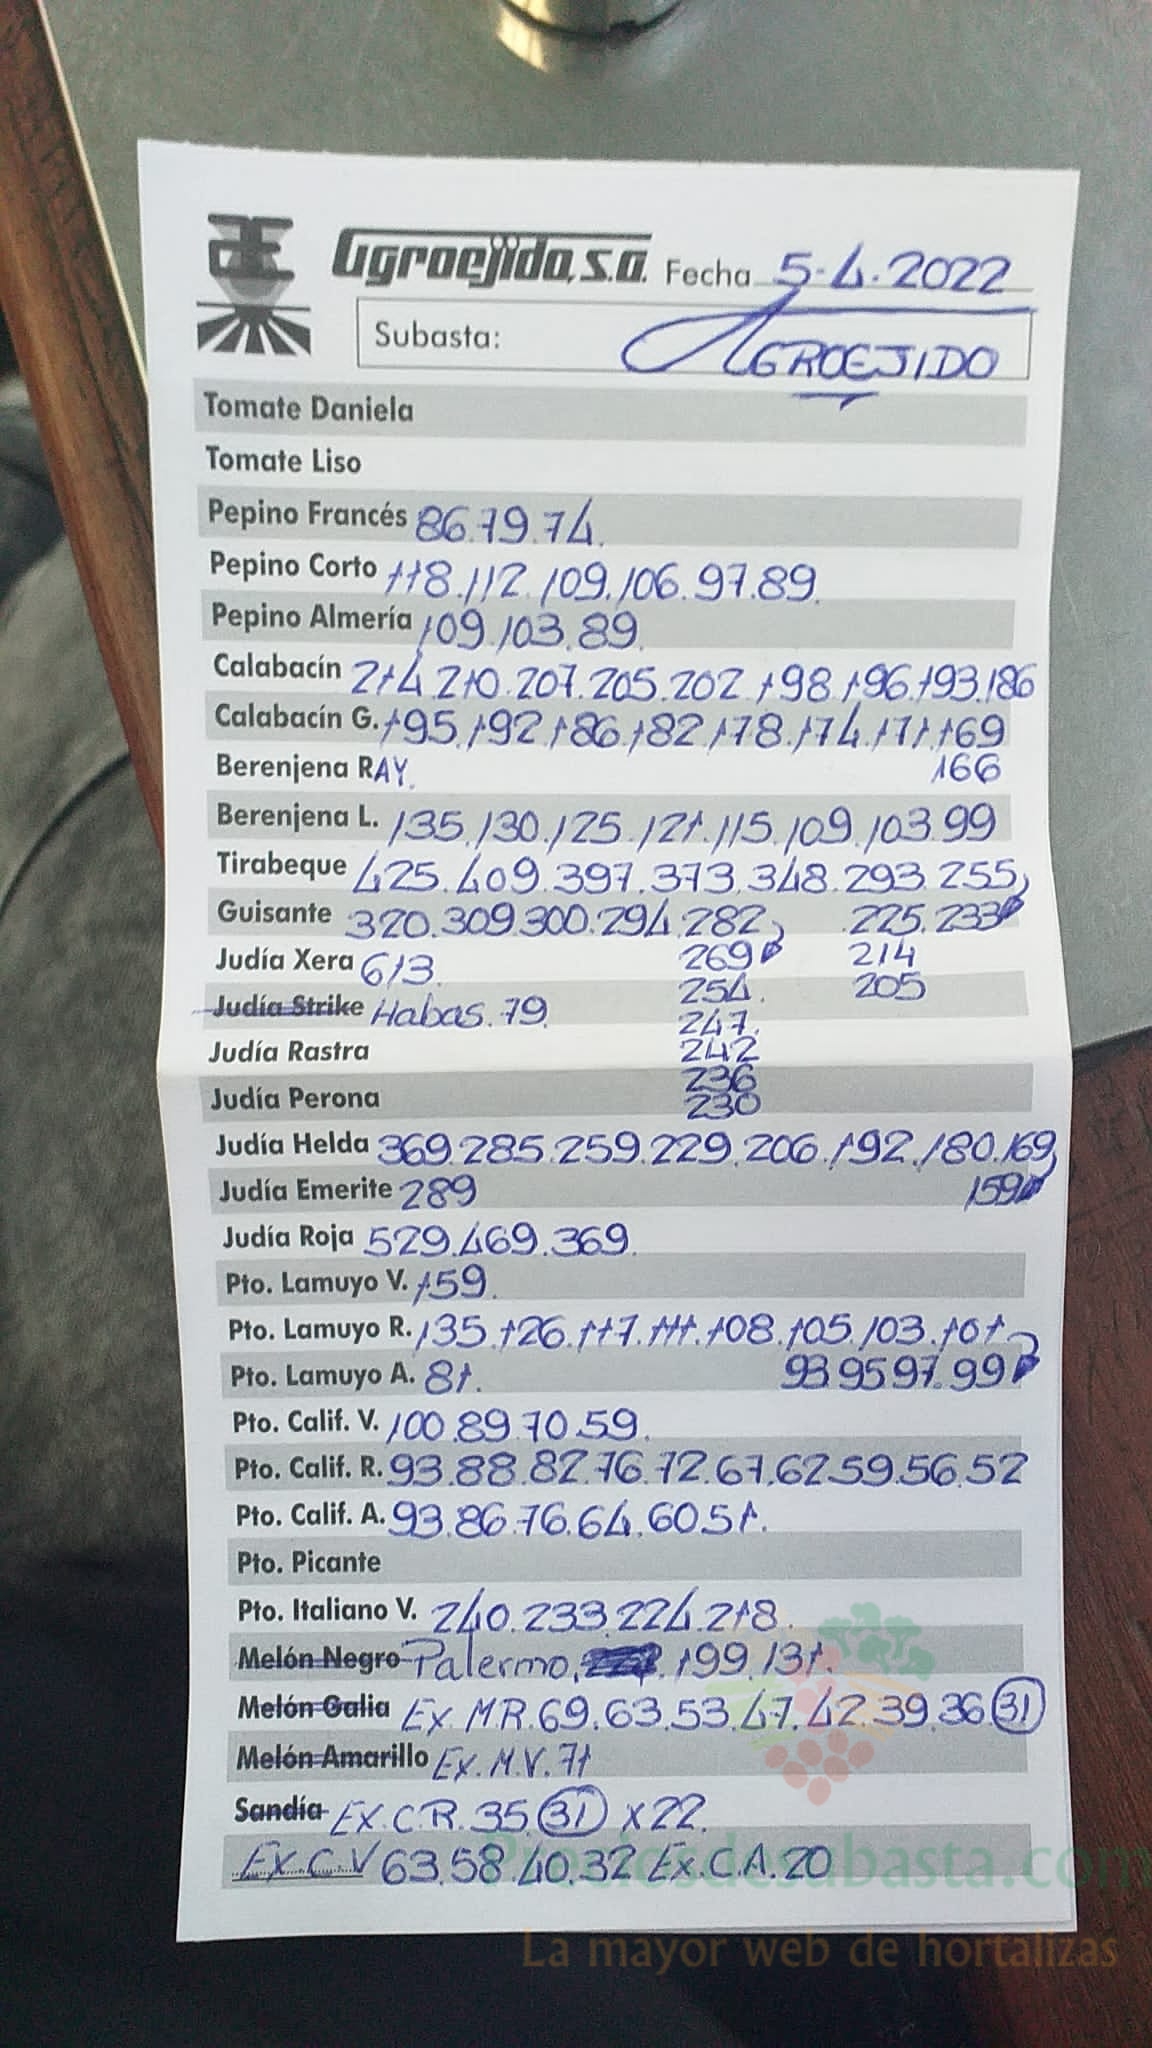 Agroejido, s.a. Fecha 5-4.2022
Subasta: AGROEJIDO
Tomate Daniela
Tomate Liso
Pepino Francés 86.79.74.
Pepino Corto 118.112.109.106.97.89.
Pepino Almería 109.103.89.
Calabacín 214.210.207.205.202.198.196.193.186
Calabacín G. 195.192.186.182.178.174.171.169
Berenjena RAY. 166
Berenjena L. 135.130.125.121.115.109.103.99
Tirabeque 425.409.397.373.348.293.255
Guisante 320.309.300.294.282 225.233
Judía Xera 613. 269 214
254. 205
Judía Strike Habas. 79. 247.
Judía Rastra 242
236
Judía Perona 230
Judía Helda 369.285.259.229.206.192.180.169
Judía Emerite 289 159
Judía Roja 529.469.369.
Pto. Lamuyo V. 159.
Pto. Lamuyo R. 135.126.117.111.108.105.103.101
Pto. Lamuyo A. 81. 93.95.97.99
Pto. Calif. V. 100.89.70.59.
Pto. Calif. R. 93.88.82.76.72.67.62.59.56.52
Pto. Calif. A. 93.86.76.64.60.51.
Pto. Picante
Pto. Italiano V. 240.233.224.218.
Melón Negro Palermo. 199.131.
Melón Galia Ex. M.R. 69.63.53.47.42.39.36.31
Melón Amarillo Ex. M.V. 71
Sandía EX.C.R. 35.31 X22.
EX.C.V 63.58.40.32 Ex.C.A. 20
Preciosdesubasta.com
La mayor web de hortalizas